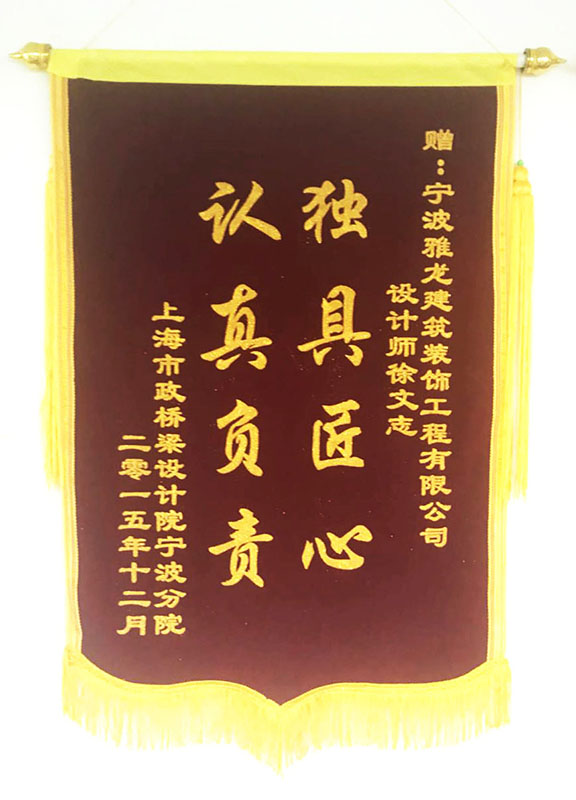 赠：宁波雅龙建筑装饰工程有限公司
设计师徐文志
独具匠心
认真负责
上海市政桥梁设计院宁波分院
二零一五年十二月